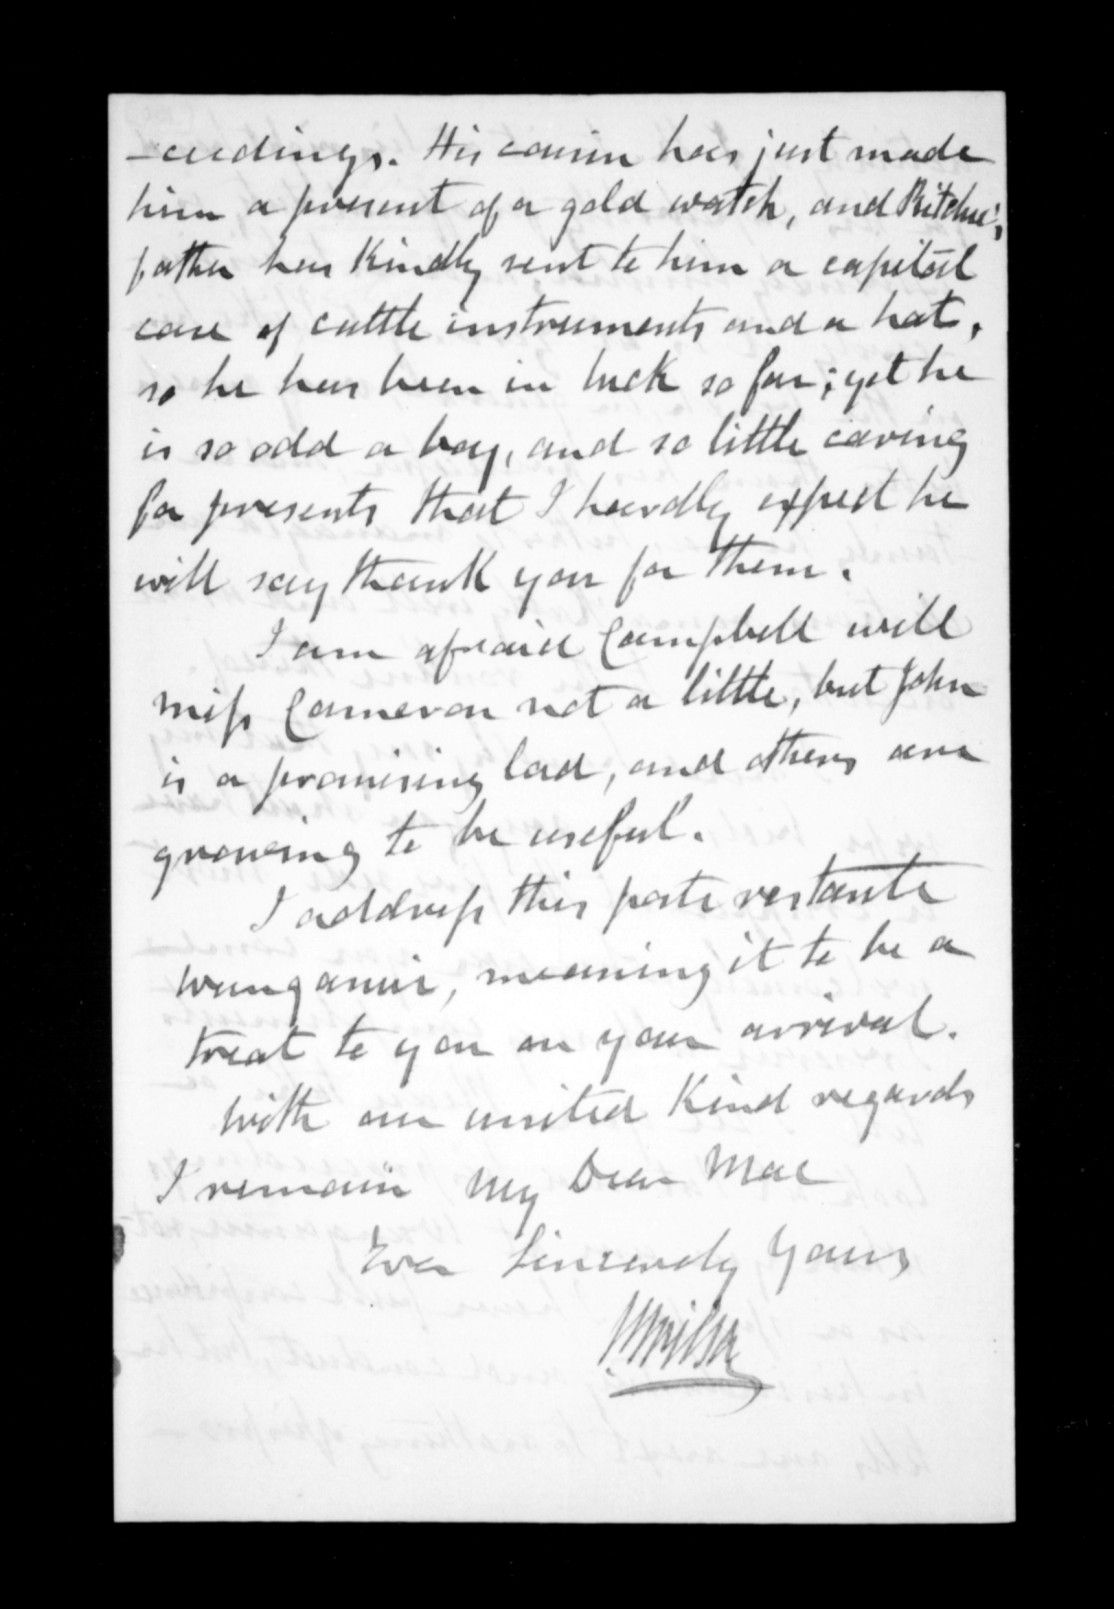 -ceedings. His cousin has just made
him a present of a gold watch, and Ritchie's
father has kindly sent to him a capital
case of cattle instruments and a hat,
so he has been in luck so far; yet he
is so odd a boy, and so little caring
for presents that I hardly expect he
will say thank you for them.
I am afraid Campbell will
miss Cameron not a little, but John
is a promising lad, and others are
growing to be useful.
I address this poste restante
Wanganui, meaning it to be a
treat to you on your arrival.
With our united Kind regards
I remain My Dear Mac
Ever Sincerely Yours